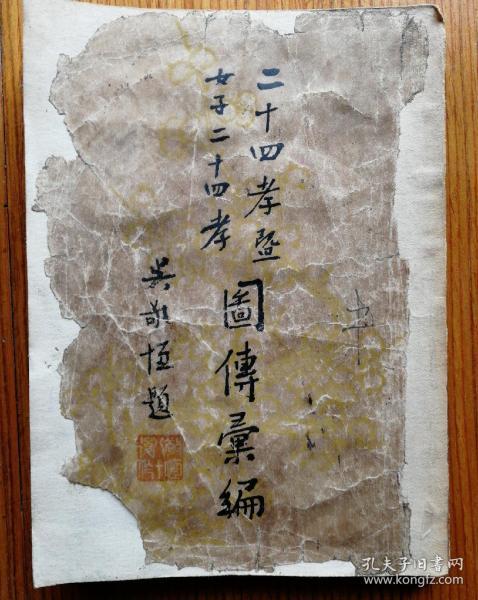 二十四孝暨
女子二十四孝
圖傳彙編
吴敬恆題
孔夫子旧书网
www.kongfz.com